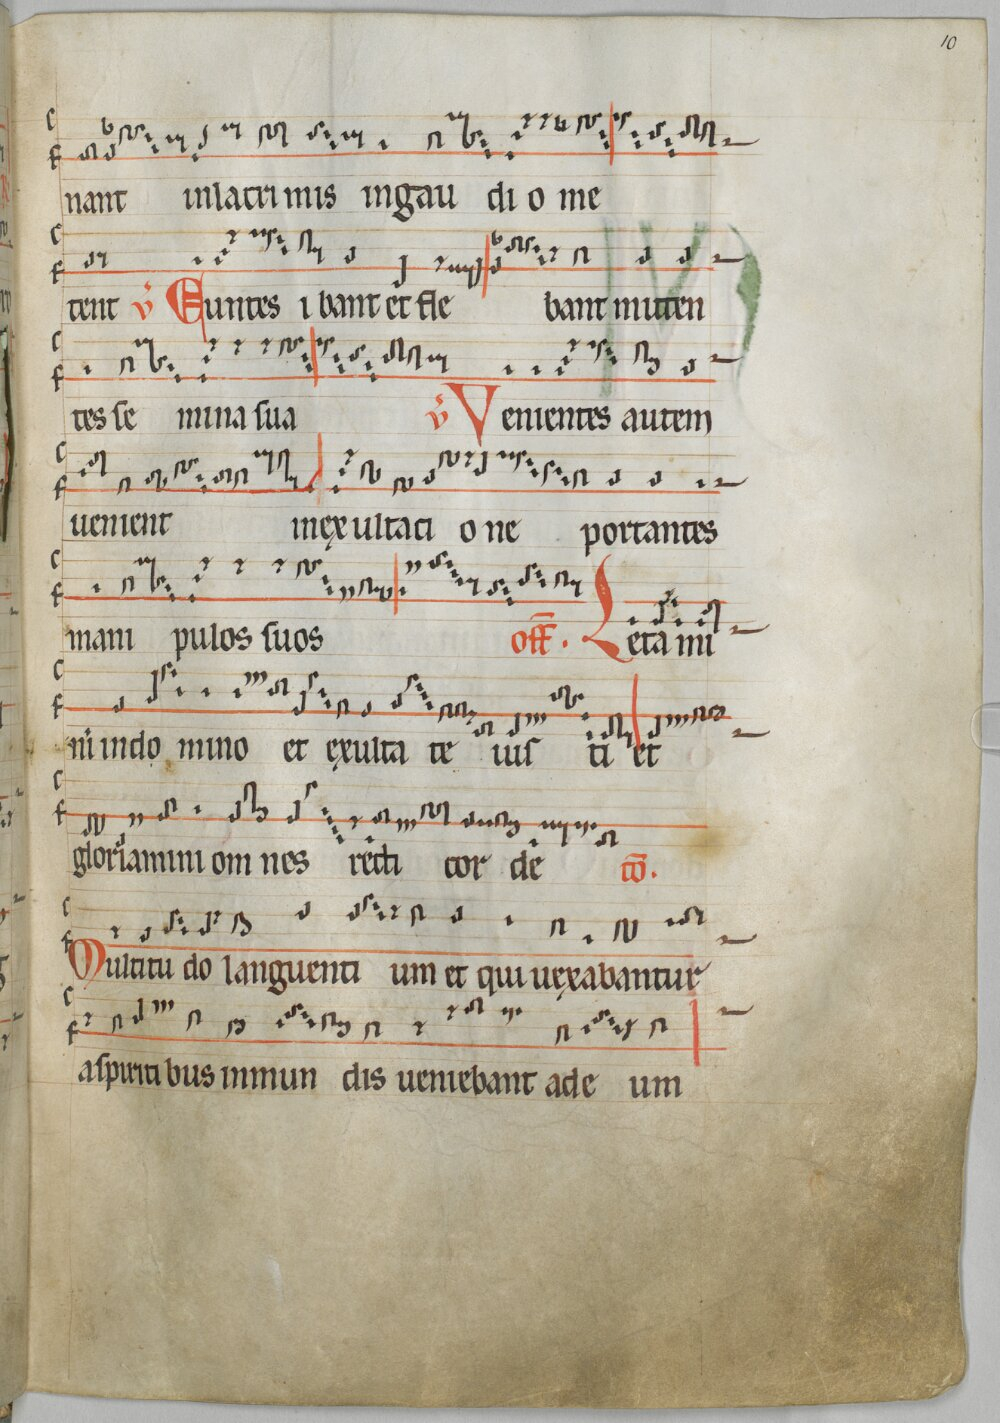 10
nant inlacrimis ingau di o me
tent v̄ Euntes i bant et fle bant mitten
tes se mina sua v̄ Venientes autem
uenient inexultati o ne portantes
mani pulos suos off̄. Letami
ni indo mino et exulta te ius ti et
gloriamini om nes recti cor de cō.
Multitu do languenti um et qui uexabantur
aspiriti bus inmun dis ueniebant ade um